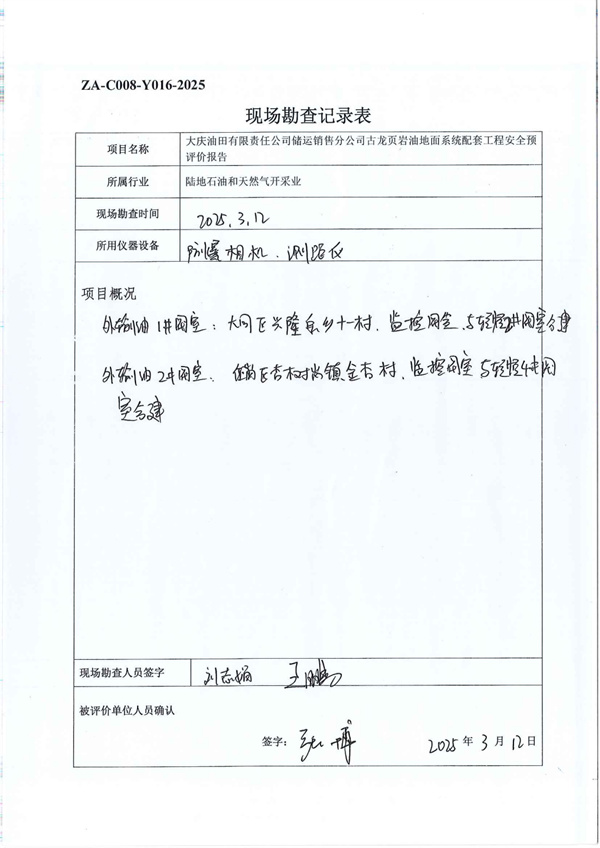 ZA-C008-Y016-2025
现场勘查记录表
项目名称
大庆油田有限责任公司储运销售分公司古龙页岩油地面系统配套工程安全预
评价报告
所属行业
陆地石油和天然气开采业
现场勘查时间
2025.3.12
所用仪器设备
防爆相机、测距仪
项目概况
外输油1#阀室：大同区兴隆泉乡十一村，监控阀室，与轻烃2#阀室合建
外输油2#阀室：区杏树岗镇金杏村，监控阀室与轻烃4#阀
室合建
现场勘查人员签字
刘志娟 王鹏
被评价单位人员确认
签字：
2025年3月12日